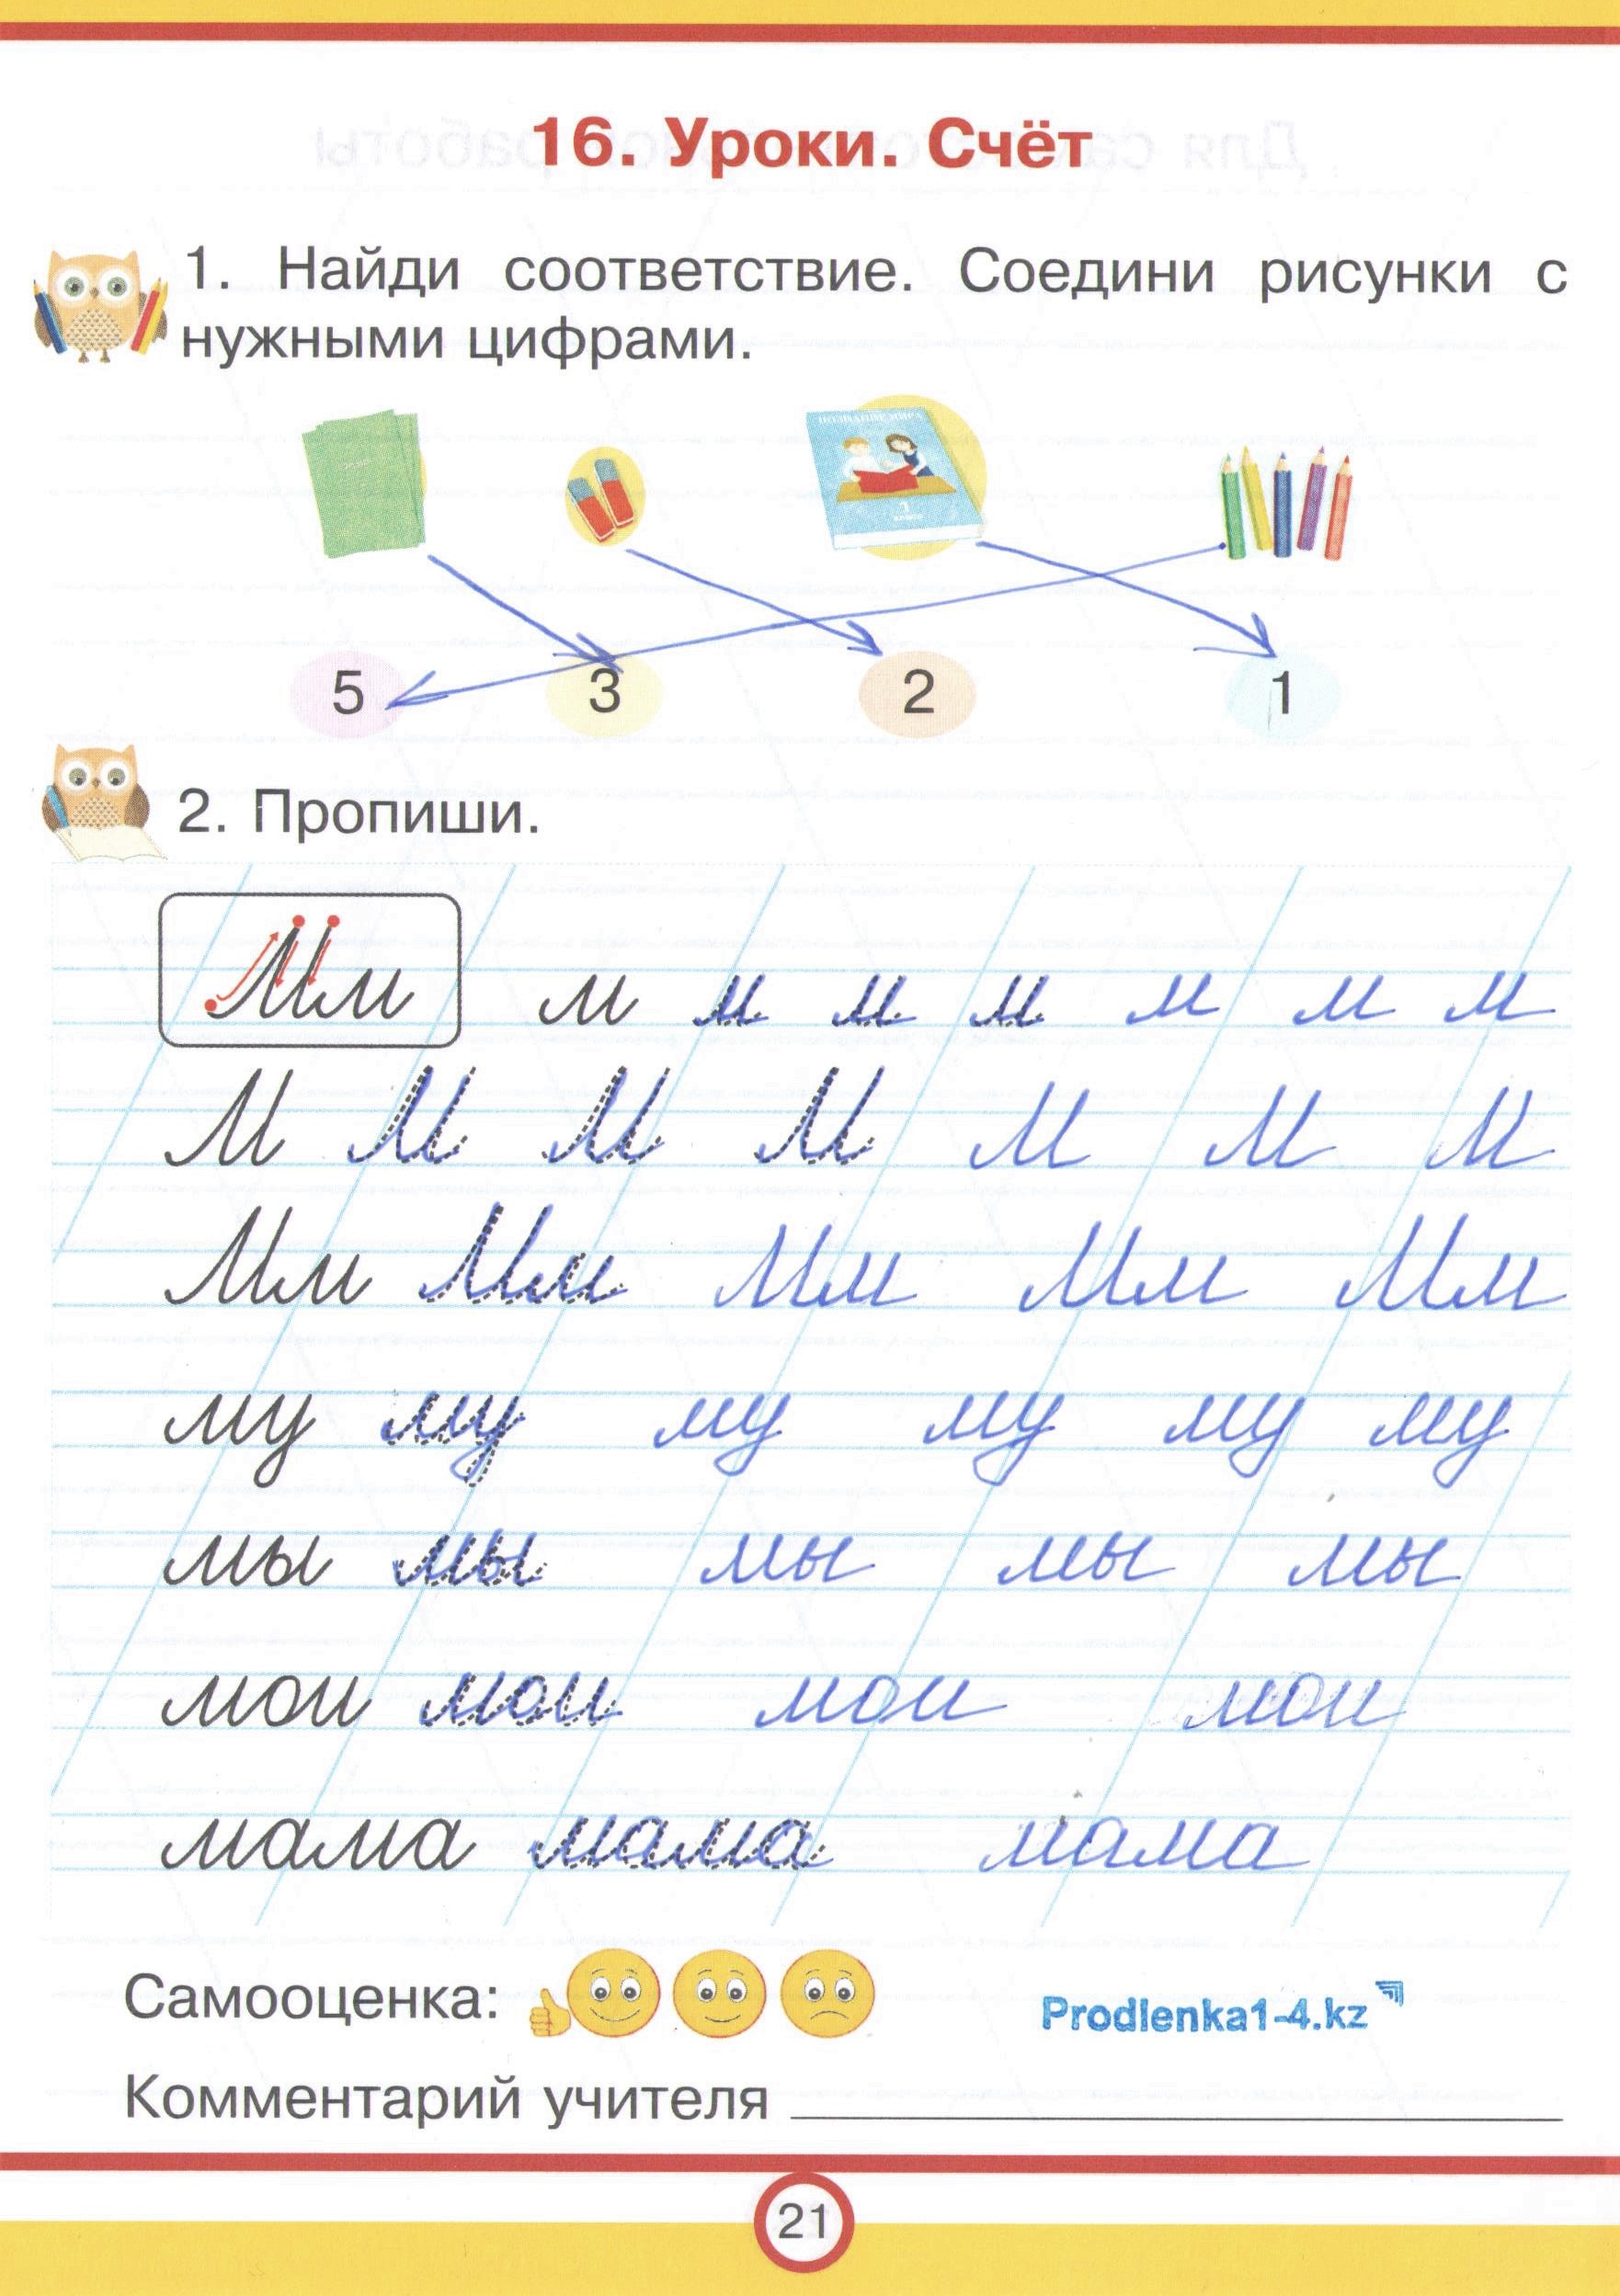 16. Уроки. Счёт
1. Найди соответствие. Соедини рисунки с
нужными цифрами.
ПОЗНАНИЕ МИРА
1
класс
5 3 2 1
2. Пропиши.
Мм м м м м м м м
М М М М М М М
Мм Мм Мм Мм Мм
му му му му му му
мы мы мы мы мы
мои мои мои мои
мама мама мама
Самооценка:
Prodlenka1-4.kz
Комментарий учителя
21